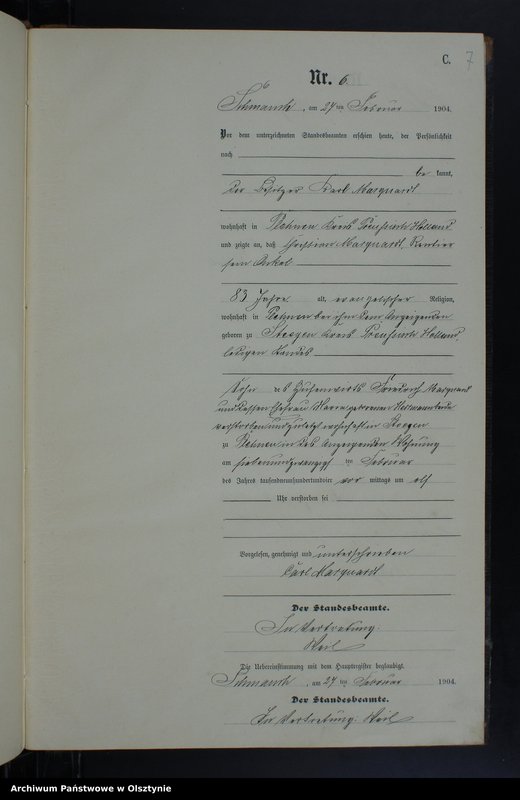 C. 7
Nr. 6
Schmauch, am 27 ten Februar 1904.
Vor dem unterzeichneten Standesbeamten erschien heute, der Persönlichkeit
nach
be kannt,
der Besitzer Karl Marquardt
wohnhaft in Plehnen Kreis Preußisch Holland
und zeigte an, daß Christian Marquardt, Rentier
sein Onkel
83 Jahre alt, evangelischer Religion,
wohnhaft in Plehnen bei ihm dem Anzeigenden
geboren zu Steegen Kreis Preußisch Holland,
ledigen Standes
Sohn des Hufenwirts Friedrich Marquardt
und dessen Ehefrau Maria geborenen beide
verstorben und zuletzt wohnhaft in Steegen
zu Plehnen in des Anzeigenden Wohnung
am siebenundzwanzig ten Februar
des Jahres tausendneunhundertundvier vor mittags um elf
Uhr verstorben sei
Vorgelesen, genehmigt und unterschrieben
Carl Marquardt
Der Standesbeamte.
In Vertretung:
Weil
Die Uebereinstimmung mit dem Hauptregister beglaubigt.
Schmauch, am 27 ten Februar 1904.
Der Standesbeamte.
In Vertretung: Weil
Archiwum Państwowe w Olsztynie